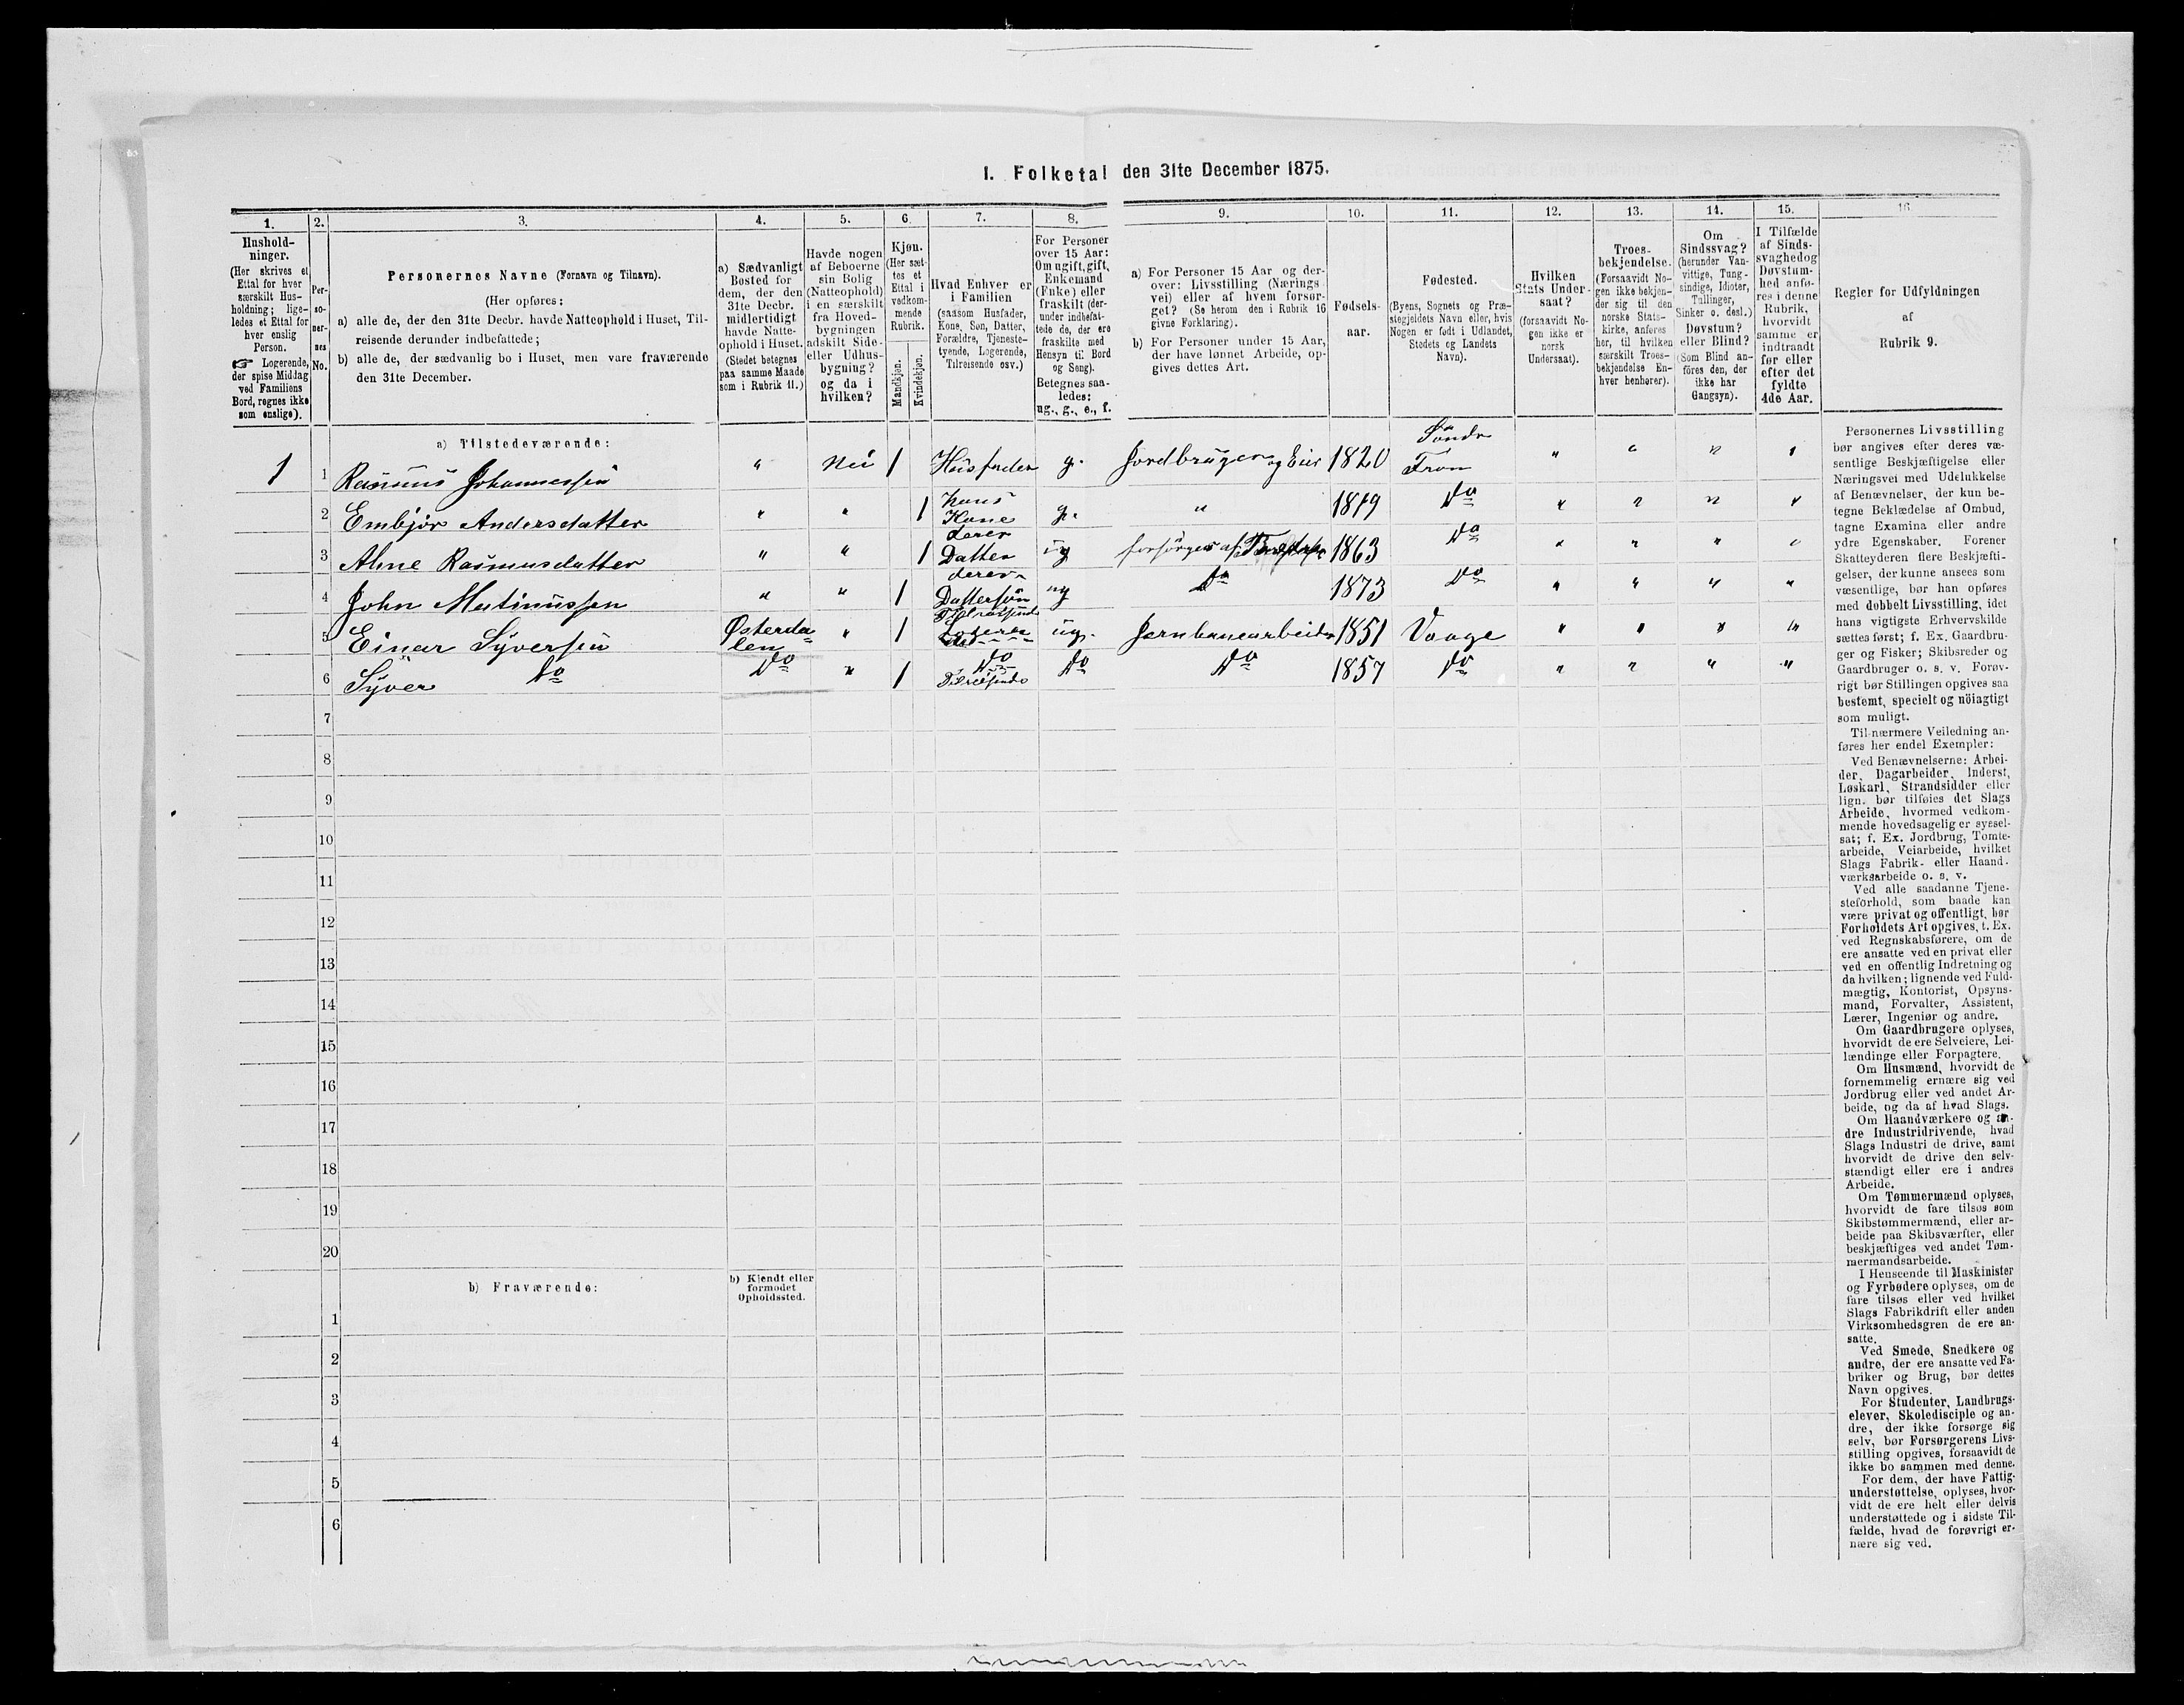 I. Folketal den 31te December 1875.
1. 2. 3. 4. 5. 6. 7. 8. 9. 10. 11. 12. 13. 14. 15. 16.
Hushold-
ninger.
(Her skrives et
Ettal for hver
særskilt Hus-
holdning; lige-
ledes et Ettal for
hver enslig
Person.
☞ Logerende,
der spise Middag
ved Familiens
Bord, regnes ikke
som enslige).
Per-
so-
ner-
nes
No.
Personernes Navne (Fornavn og Tilnavn).
(Her opføres:
a) alle de, der den 31te Decbr. havde Natteophold i Huset, Til-
reisende derunder indbefattede;
b) alle de, der sædvanlig bo i Huset, men vare fraværende
den 31te December.
a) Sædvanligt
Bosted for
dem, der den
31te Decbr.
midlertidigt
havde Natte-
ophold i Huset.
(Stedet betegnes
paa samme Maade
som i Rubrik 11.)
Havde nogen
af Beboerne
sin Bolig
(Natteophold)
i en særskilt
fra Hoved-
bygningen
adskilt Side-
eller Udhus-
bygning?
og da i
hvilken?
Kjøn.
(Her sæt-
tes et
Ettal i
vedkom-
mende
Rubrik.
Mandkjøn.
Kvindekjøn.
Hvad Enhver er
i Familien
(saasom Husfader,
Kone, Søn, Datter,
Forældre, Tjeneste-
tyende, Logerende,
Tilreisende osv.)
For Personer
over 15 Aar:
Om ugift, gift,
Enkemand
(Enke) eller
fraskilt (der-
under indbefat-
tede de, der ere
fraskilte med
Hensyn til Bord
og Seng).
Betegnes saa-
ledes:
ug., g., e., f.
a) For Personer 15 Aar og der-
over: Livsstilling (Nærings-
vei) eller af hvem forsør-
get? (Se herom den i Rubrik 16
givne Forklaring).
b) For Personer under 15 Aar,
der have lønnet Arbeide, op-
gives dettes Art.
Fødsels-
aar.
Fødested.
(Byens, Sognets og Præ-
stegjeldets Navn eller, hvis
Nogen er født i Udlandet,
Stedets og Landets
Navn).
Hvilken
Stats Under-
saat?
(forsaavidt No-
gen ikke er
norsk
Undersaat).
Troes-
bekjendelse.
(Forsaavidt No-
gen ikke bekjen-
der sig til den
norske Stats-
kirke, anføres
her, til hvilken
særskilt Troes-
bekjendelse En-
hver henhører).
Om
Sindssvag?
(herunder Van-
vittige, Tung-
sindige, Idioter,
Tullinger,
Sinker o. desl.)
Døvstum?
eller Blind?
(Som Blind an-
föres den, der
ikke har
Gangsyn).
I Tilfælde
af Sinds-
svaghed og
Døvstum-
hed anfø-
res i denne
Rubrik,
hvorvidt
samme er
indtraadt
før eller
efter det
fyldte
4de Aar.
Regler for Udfyldningen
af
Rubrik 9.
a) Tilstedeværende:
1 1 Rasmus Johannessen " Nei 1 Husfader g. Jordbruger og Eier 1820 Söndr Fron " " " "
2 Embjør Andersdatter " " 1 hans Kone g. " 1819 Do " " " "
3 Aline Rasmusdatter " " 1 deres Datter ug forsörges af 1863 Do " " " "
4 John Matinussen " " 1 deres Dattersön ug Do 1873 Do " " " "
5 Einar Syversen Østerdalen " 1 Tilreisende ug. Jernbanearbeider 1851 Vaage " " " "
6 Syver Do Do " 1 Do Tilreisende Do Do 1857 Do " " " "
7
8
9
10
11
12
13
14
15
16
17
18
19
20
b) Fraværende:
b) Kjendt eller
formodet
Opholdssted.
1
2
3
4
5
6
Personernes Livsstilling
bør angives efter deres væ-
sentlige Beskjæftigelse eller
Næringsvei med Udelukkelse
af Benævnelser, der kun be-
tegne Beklædelse af Ombud,
tagne Examina eller andre
ydre Egenskaber. Forener
Skatteyderen flere Beskjæfti-
gelser, der kunne ansees som
væsentlige, bør han opføres
med dobbelt Livsstilling, idet
hans vigtigste Erhvervskilde
sættes først; f. Ex. Gaardbru-
ger og Fisker; Skibsreder og
Gaardbruger o. s. v. Forøv-
rigt bør Stillingen opgives saa
bestemt, specielt og nöiagtigt
som muligt.
Til nærmere Veiledning an-
føres her endel Exempler:
Ved Benævnelserne: Arbei-
der, Dagarbeider, Inderst,
Løskarl, Strandsidder eller
lign. bør tilføies det Slags
Arbeide, hvormed vedkom-
mende hovedsagelig er syssel-
sat; f. Ex. Jordbrug, Tomte-
arbeide, Veiarbeide, hvilket
Slags Fabrik- eller Haand-
værksarbeide o. s. v.
Ved alle saadanne Tjene-
steforhold, som baade kan
være privat og offentligt, bør
Forholdets Art opgives, t. Ex.
ved Regnskabsførere, om de
ere ansatte ved en privat eller
ved en offentlig Indretning og
da hvilken; lignende ved Fuld-
mægtig, Kontorist, Opsyns-
mand, Forvalter, Assistent,
Lærer, Ingeniør og andre.
Om Gaardbrugere oplyses,
hvorvidt de ere Selveiere, Lei-
lændinge eller Forpagtere.
Om Husmænd, hvorvidt de
fornemmelig ernære sig ved
Jordbrug eller ved andet Ar-
beide, og da af hvad Slags.
Om Haandværkere og an-
dre Industridrivende, hvad
Slags Industri de drive, samt
hvorvidt de drive den selv-
stændigt eller ere i andres
Arbeide.
Om Tømmermænd oplyses,
hvorvidt de fare tilsøs som
Skibstømmermænd, eller ar-
beide paa Skibsværfter, eller
beskjæftiges ved andet Tøm-
mermandsarbeide.
I Henseende til Maskinister
og Fyrbødere oplyses, om de
fare tilsøs eller ved hvilket
Slags Fabrikdrift eller anden
Virksomhedsgren de ere an-
satte.
Ved Smede, Snedkere og
andre, der ere ansatte ved Fa-
briker og Brug, bør dettes
Navn opgives.
For Studenter, Landbrugs-
elever, Skoledisciple og an-
dre, der ikke forsørge sig
selv, bør Forsørgerens Livs-
stilling opgives, forsaavidt de
ikke bo sammen med denne.
For dem, der have Fattig-
understøttelse, oplyses, hvor-
vidt de ere helt eller delvis
understøttede og i sidste Til-
fælde, hvad de forøvrigt er-
nære sig ved.